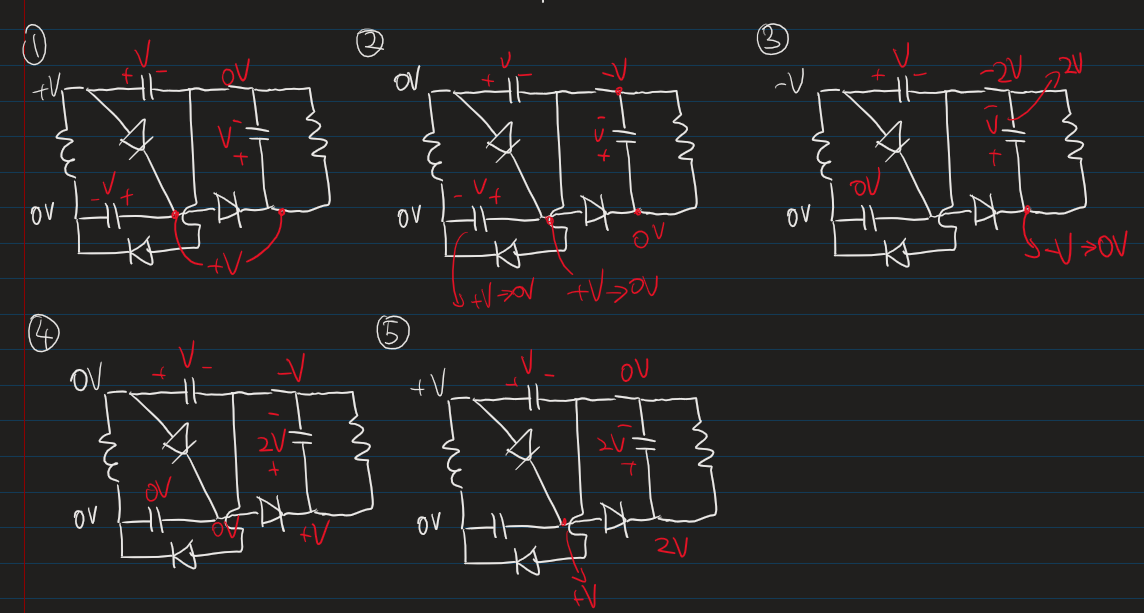 ① ② ③
+V + V - 0V
V - +
0V - V +
+V
0V + V - -V
V - +
0V - V +
0V
+V⇒0V +V→0V
-V + V - -2V 2V
0V V - +
0V
-V⇒0V
④ ⑤
0V + V - -V
2V - +
0V
0V 0V +V
+V + V - 0V
2V - +
0V
2V
+V